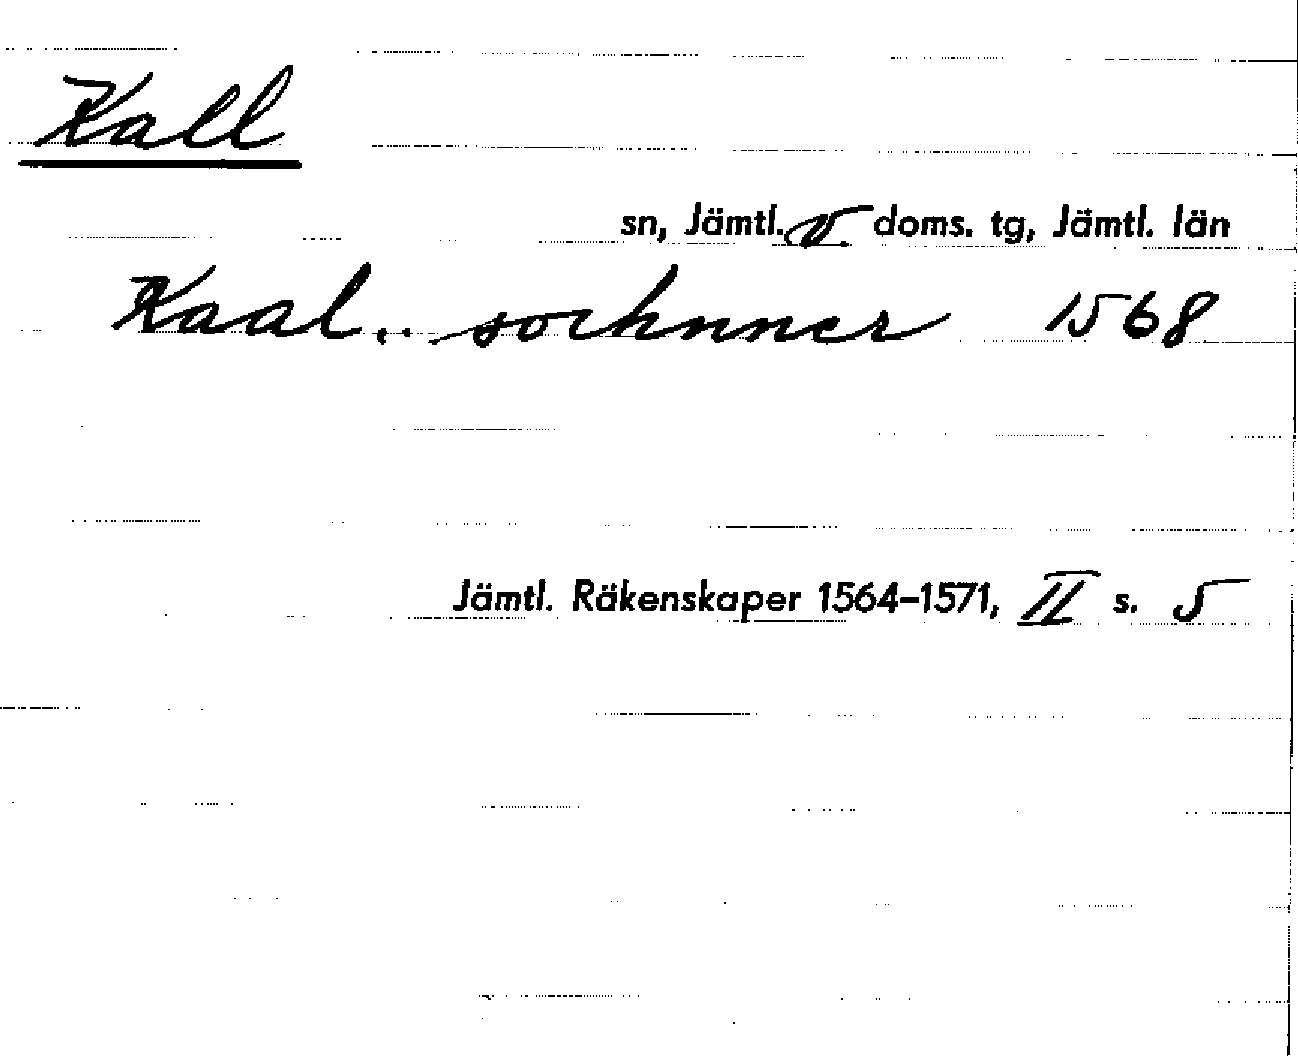 Kall
sn, Jämtl. v. doms. tg, Jämtl. län
Kaal.. sochnner 1568
Jämtl. Räkenskaper 1564-1571, II s. 5